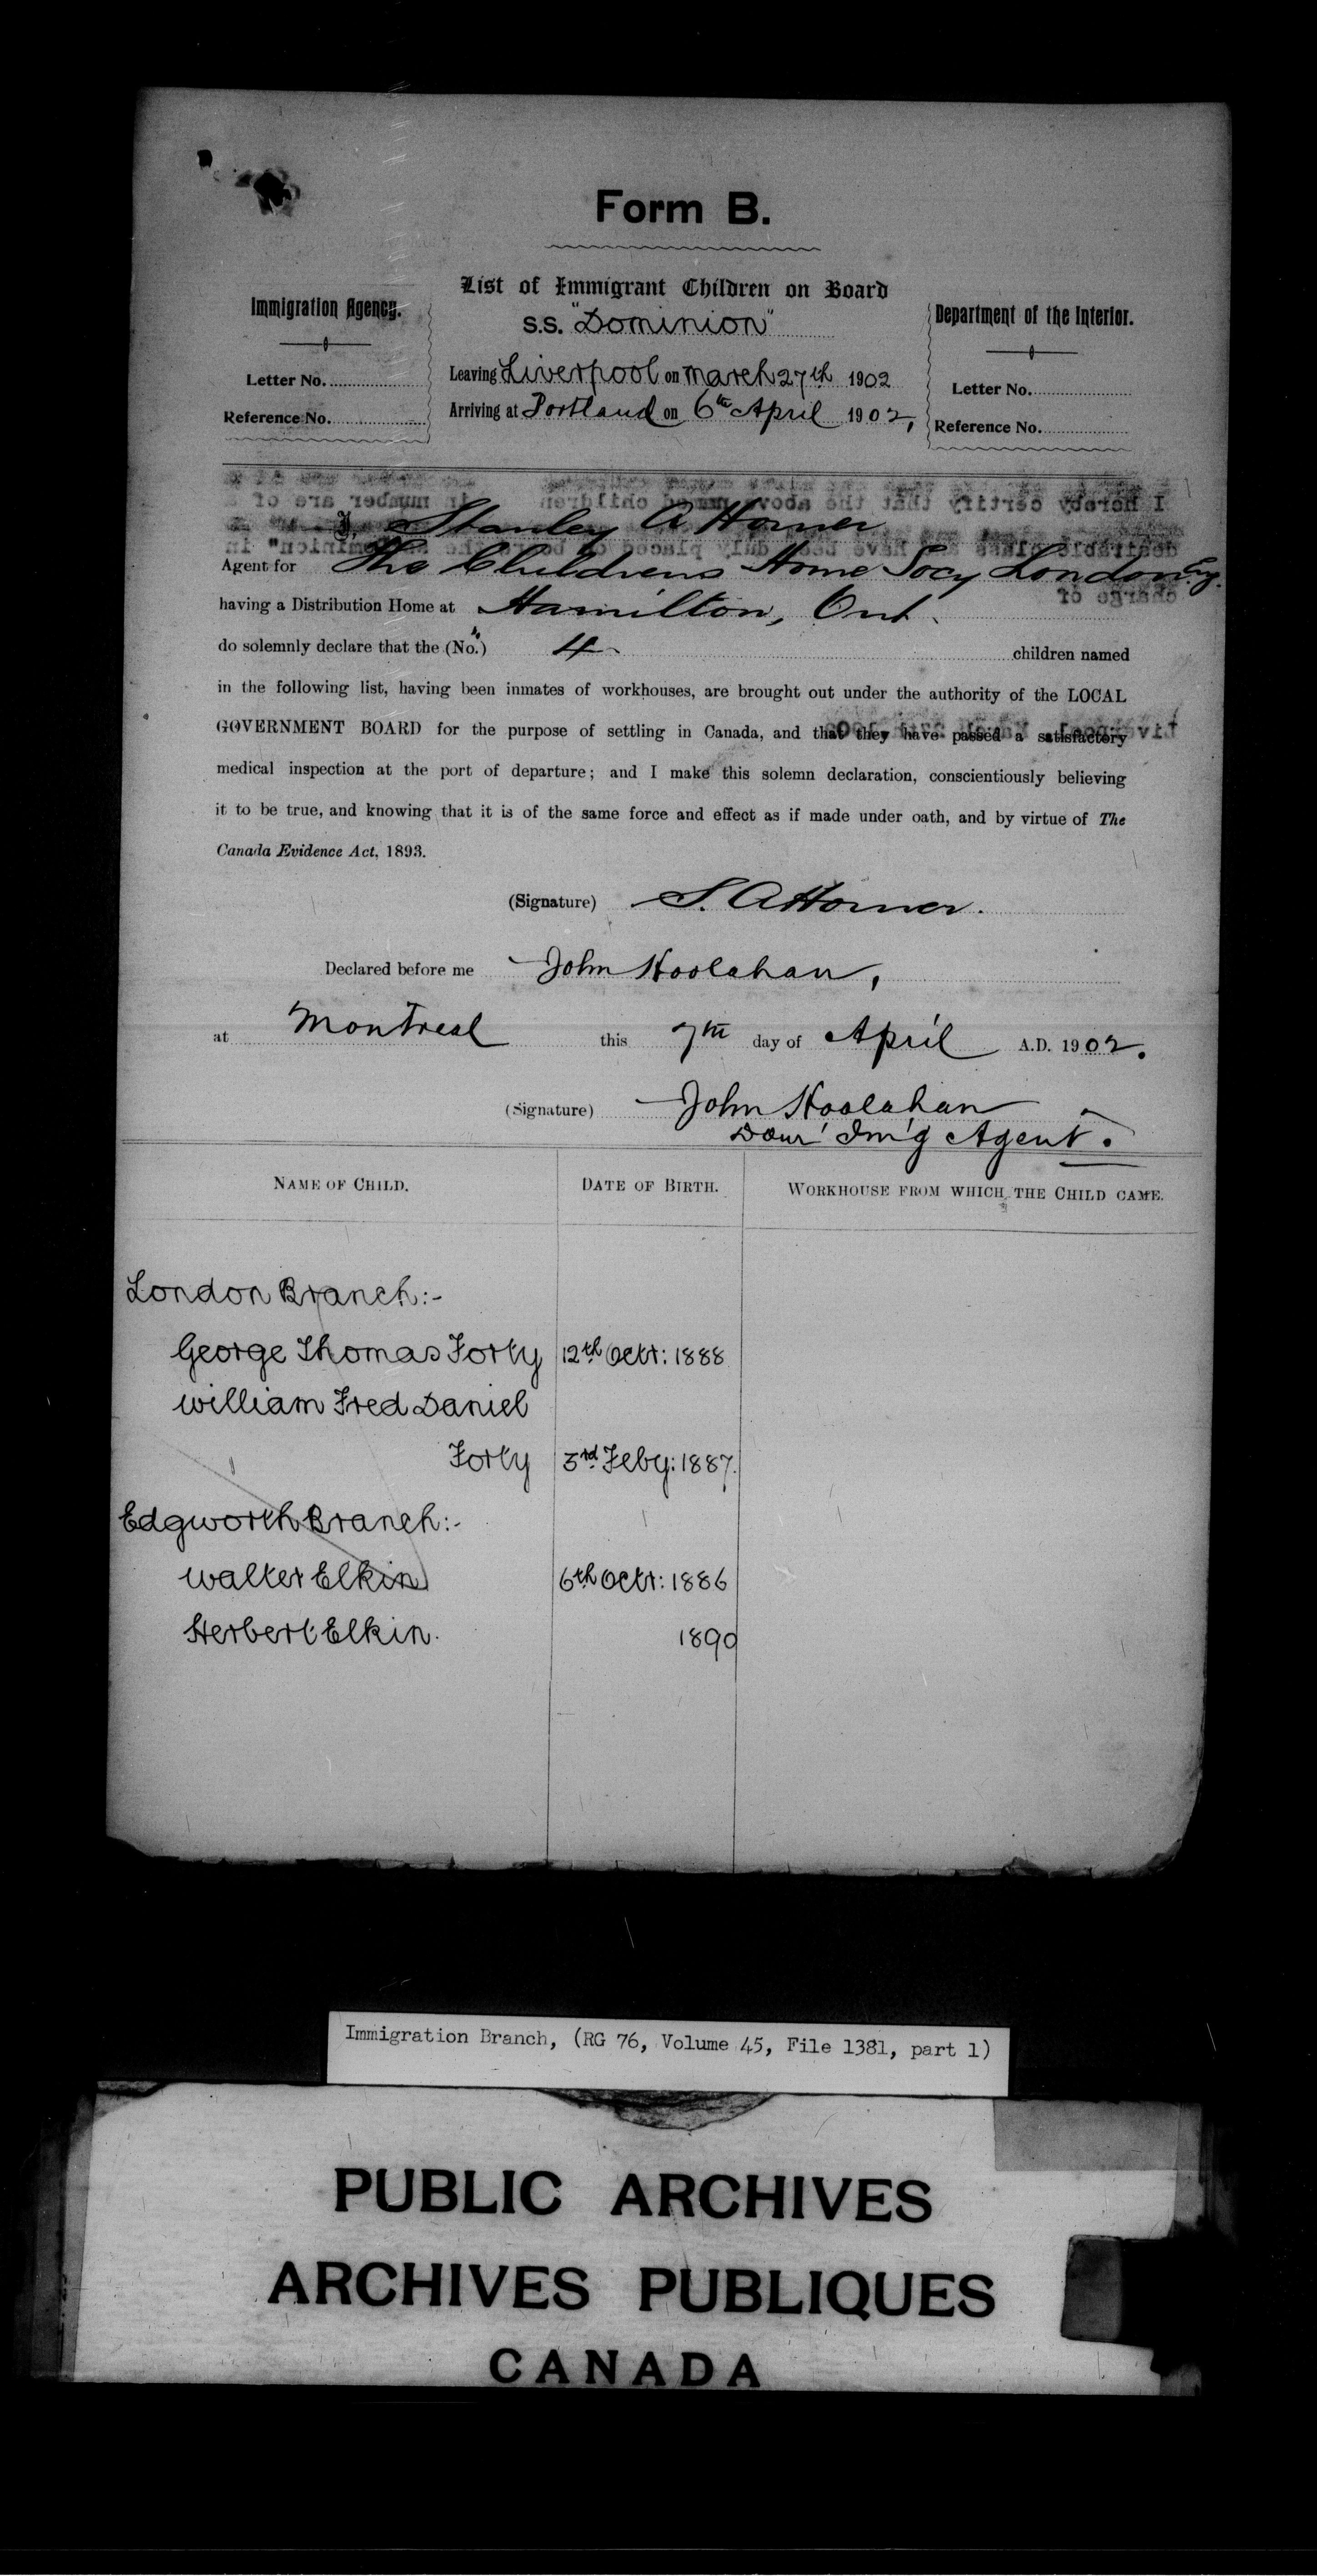 Form B.
List of Immigrant Children on Board
S.S. "Dominion"
Leaving Liverpool on March 27th 1902
Arriving at Portland on 6th April 1902,
Immigration Agency.
Letter No.
Reference No.
Department of the Interior.
Letter No.
Reference No.
I, Stanley A Horner
Agent for The Childrens Home Socy London Eng.
having a Distribution Home at Hamilton, Ont.
do solemnly declare that the (No.) 4 children named
in the following list, having been inmates of workhouses, are brought out under the authority of the LOCAL
GOVERNMENT BOARD for the purpose of settling in Canada, and that they have passed a satisfactory
medical inspection at the port of departure; and I make this solemn declaration, conscientiously believing
it to be true, and knowing that it is of the same force and effect as if made under oath, and by virtue of The
Canada Evidence Act, 1893.
(Signature) S. A Horner.
Declared before me John Hoolahan,
at Montreal this 7th day of April A.D. 1902.
(Signature) John Hoolahan
Dom' Im'g Agent.
NAME OF CHILD. DATE OF BIRTH. WORKHOUSE FROM WHICH THE CHILD CAME.
London Branch:-
George Thomas Forty 12th Octr: 1888
William Fred Daniel
Forty 3rd Feby: 1887.
Edgworth Branch:-
Walter Elkin 6th Octr: 1886
Herbert Elkin. 1890
Immigration Branch, (RG 76, Volume 45, File 1381, part 1)
PUBLIC ARCHIVES
ARCHIVES PUBLIQUES
CANADA